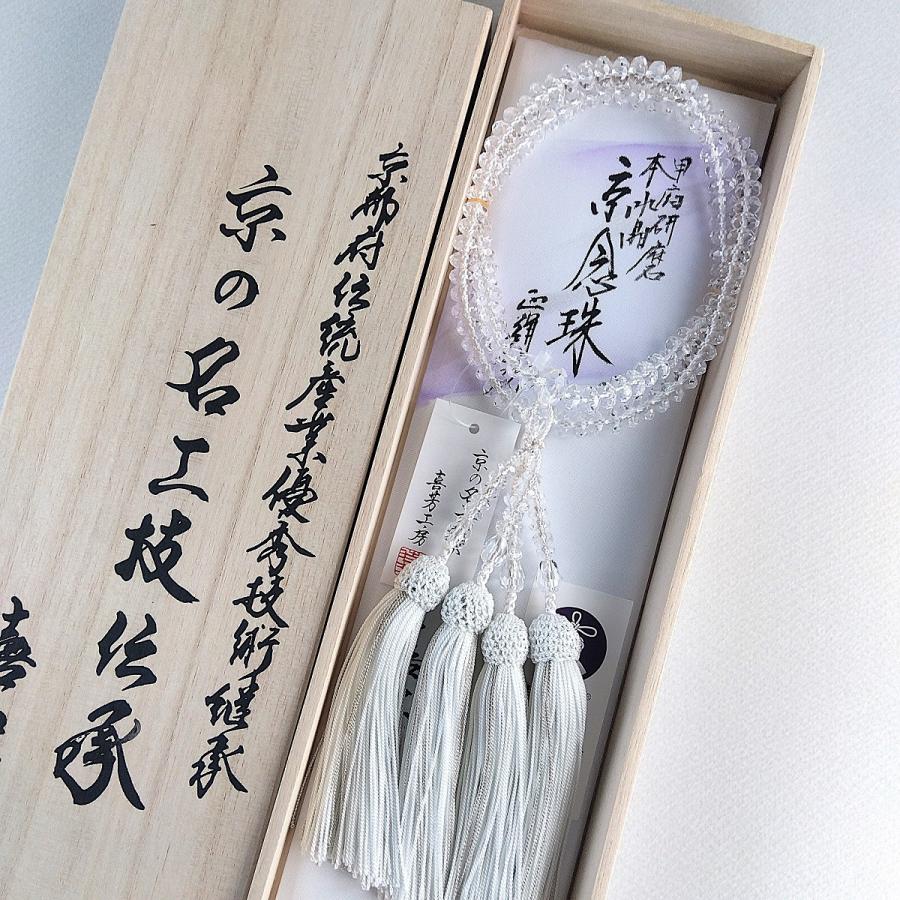 京都府伝統産業優秀技術継承
京の名工技伝承
喜
甲府研磨
本水晶
京念珠
正絹
京の名工
喜芳工房